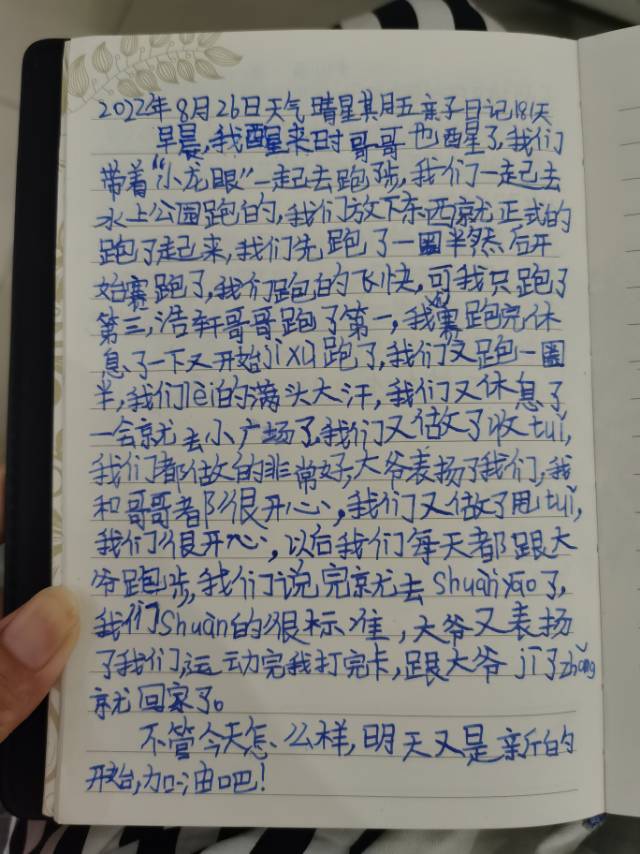 2022年8月26日天气晴星其月五亲子日记181天
早晨,我醒来时哥哥也醒了,我们
带着“小龙眼”一起去跑步,我们一起去
水上公园跑的,我们放下东西就正式的
跑了起来,我们先跑了一圈半然后开
始赛跑了,我们跑的飞快,可我只跑了
第三,浩轩哥哥跑了第一,我们赛跑完休
息了一下又开始jì xù跑了,我们又跑一圈
半,我们lèi的满头大汗,我们又休息了
一会就去小广场了,我们又做了收tuǐ,
我们都做的非常好,大爷表扬了我们,我
和哥哥都很开心,我们又做了甩tuǐ,
我们很开心,以后我们每天都跟大
爷跑步,我们说完就去shuǎi yāo了,
我们Shuǎi的很标准,大爷又表扬
了我们,运动完我打完卡,跟大爷jī了zhǎng
就回家了。
不管今天怎么样,明天又是新的
开始,加油吧!